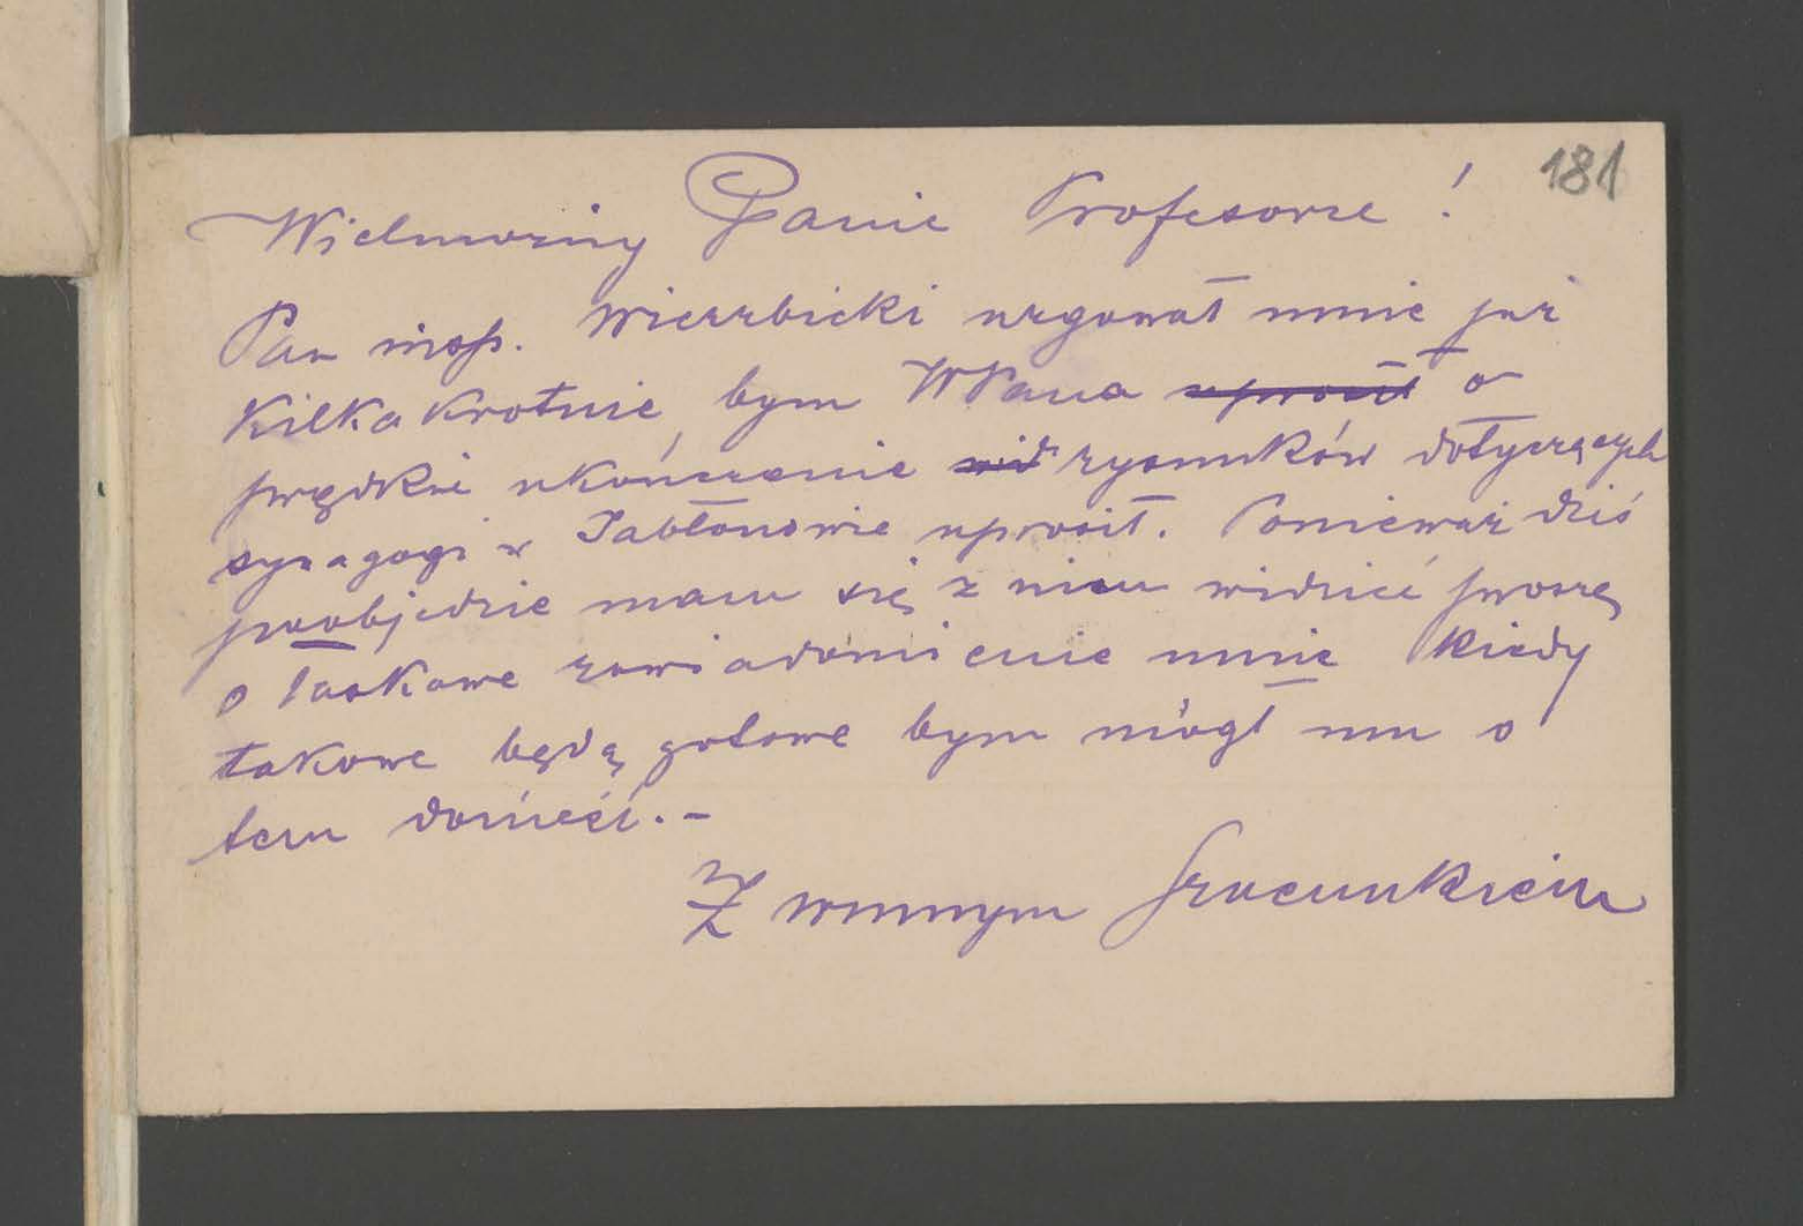 181
Wielmożny Panie Profesorze!
Pan insp. Wierzbicki urgował mnie już
kilkakrotnie, bym WPana uprosił o
prędkie ukończenie rysunków dotyczących
synagogi w Jabłonowie uprosił. Ponieważ dziś
poobjedzie mam się z nim widzieć proszę
o łaskawe zawiadomienie mnie kiedy
takowe będą gotowe bym mógł mu o
tem donieść.-
Z winnym szacunkiem